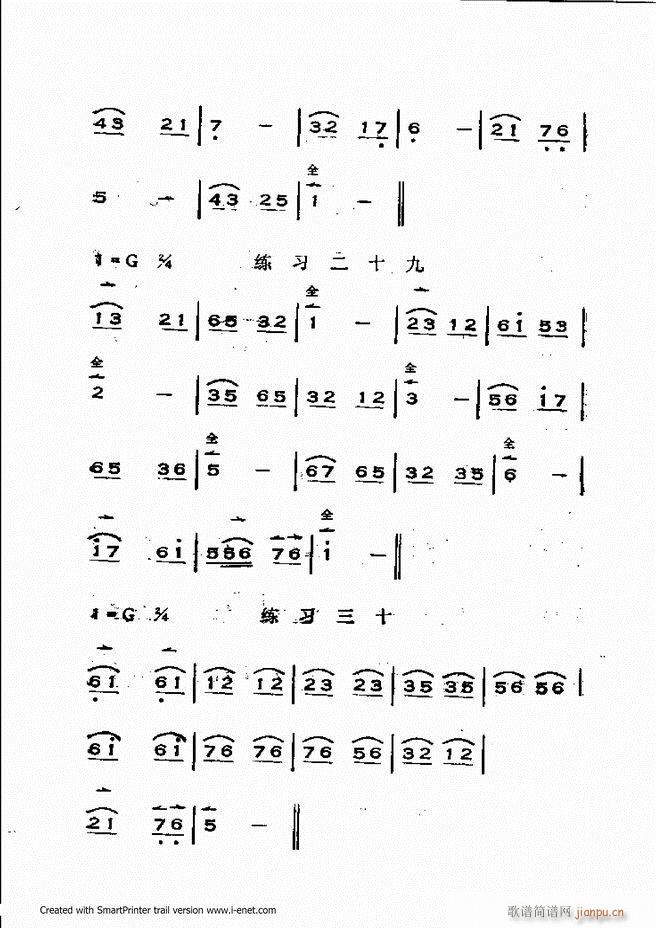 43 21 | 7 – | 32 17 | 6 – | 21 76 |
全
5 – | 43 25 | 1 – ‖
1=G 2/4 练习二十九
全
13 21 | 65 32 | 1 – | 23 12 | 61 53 |
全 全
2 – | 35 65 | 32 12 | 3 – | 56 17 |
全 全
65 36 | 5 – | 67 65 | 32 35 | 6 – |
全
17 61 | 556 76 | 1 – ‖
1=G 2/4 练习三十
61 61 | 12 12 | 23 23 | 35 35 | 56 56 |
61 61 | 76 76 | 76 56 | 32 12 |
21 76 | 5 – ‖
Created with SmartPrinter trail version www.i-enet.com
歌谱简谱网 jianpu.cn